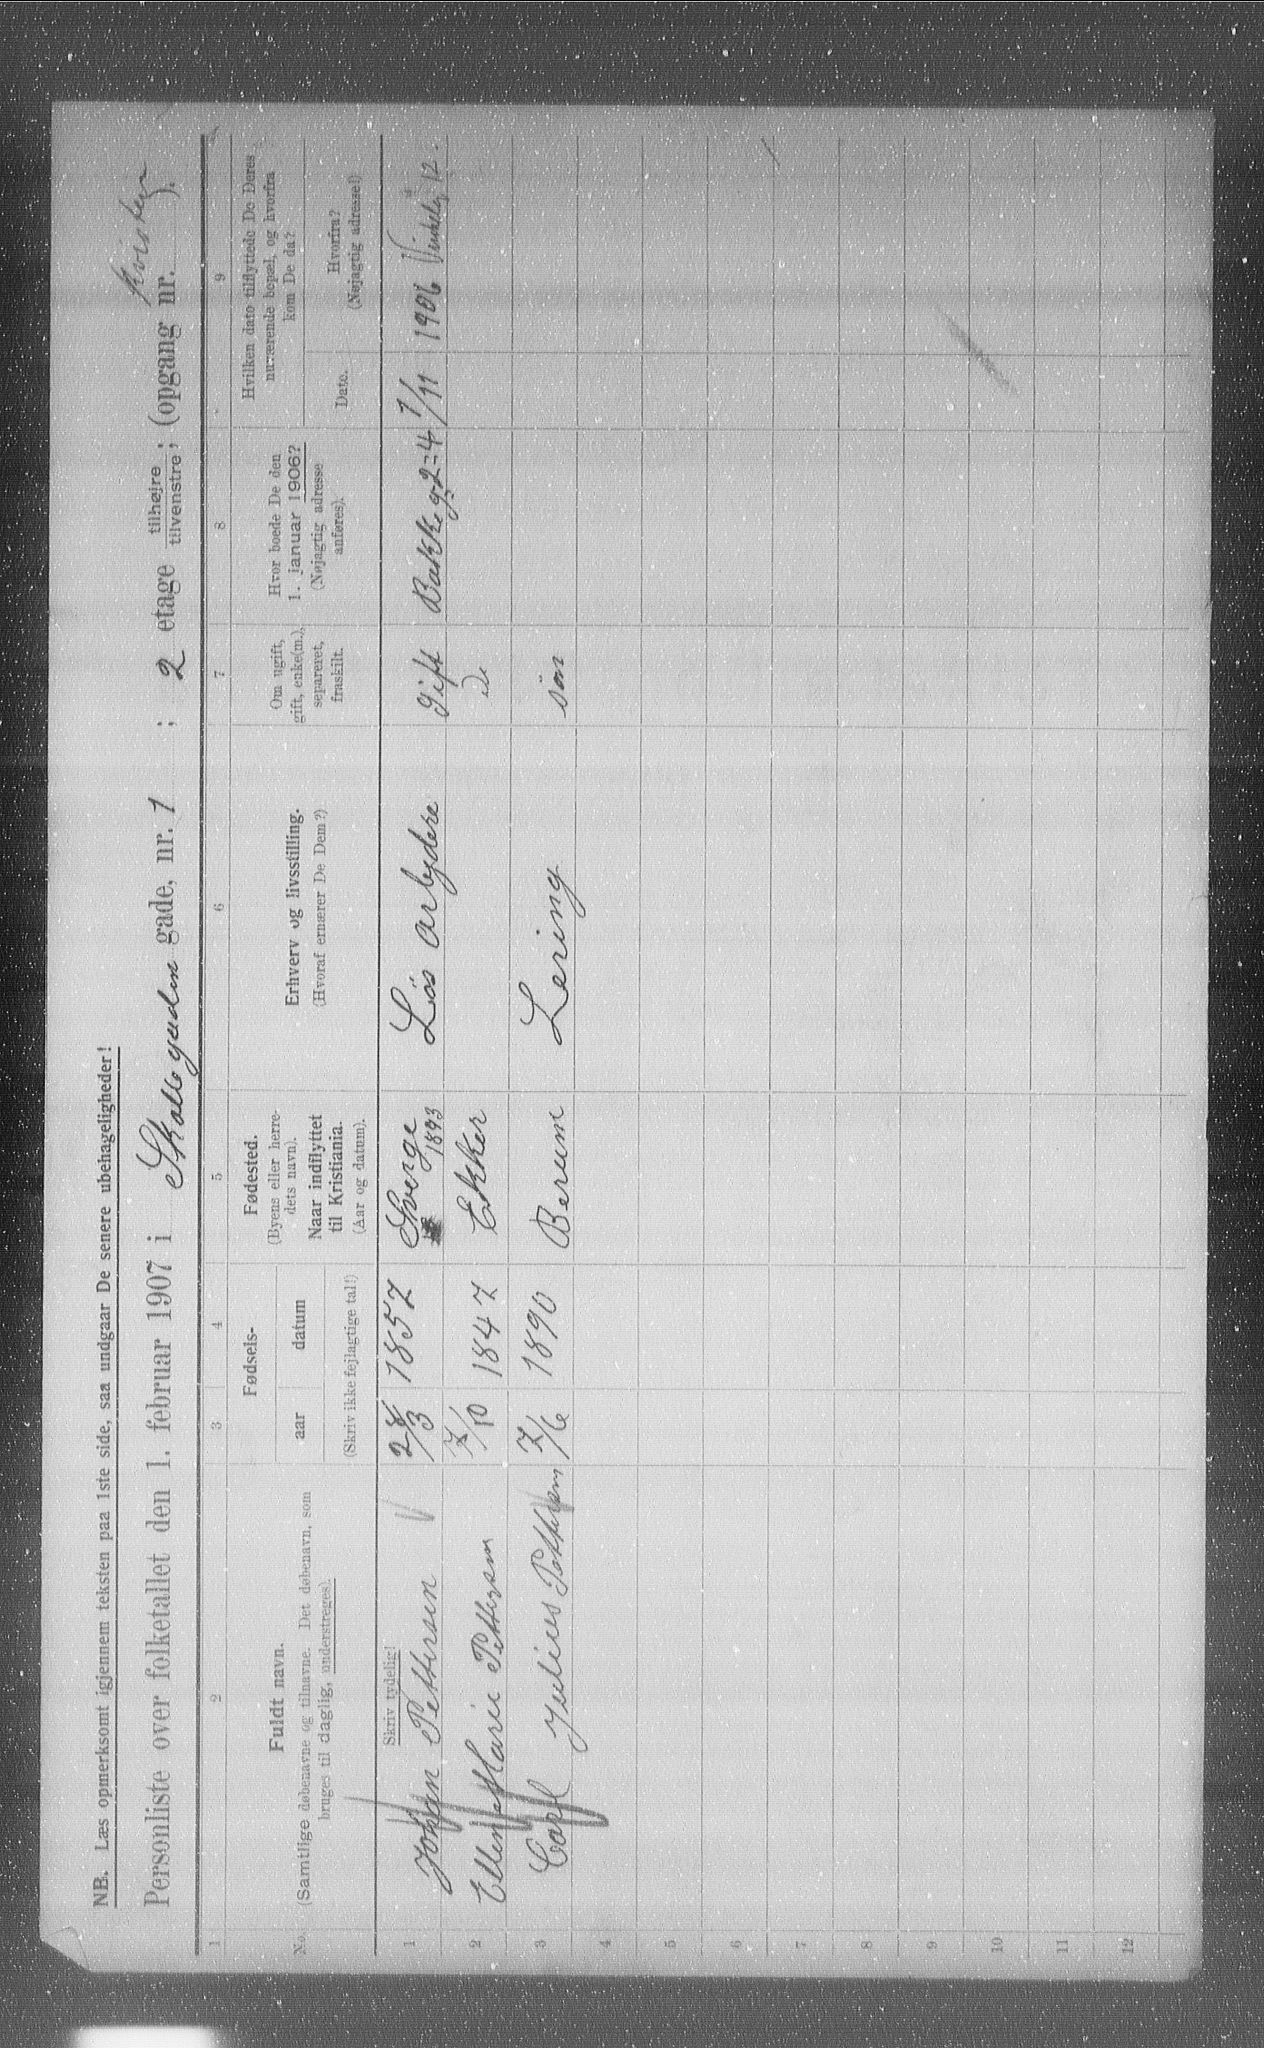 NB. Læs opmerksomt igjennem teksten paa 1ste side, saa undgaar De senere ubehageligheder!
Personliste over folketallet den 1. februar 1907 i Skallegaden gade, nr. 1 ; 2 etage tilhøjre / tilvenstre ; (opgang nr. ).
1 2 3 4 5 6 7 8 9
No.
Fuldt navn.
(Samtlige døbenavne og tilnavne. Det døbenavn, som
bruges til daglig, understreges).
Fødsels-
aar datum
(Skriv ikke fejlagtige tal!)
Fødested.
(Byens eller herre-
dets navn).
Naar indflyttet
til Kristiania.
(Aar og datum).
Erhverv og livsstilling.
(Hvoraf ernærer De Dem?)
Om ugift,
gift, enke(m.),
separeret,
fraskilt.
Hvor boede De den
1. januar 1906?
(Nøjagtig adresse
anføres).
Hvilken dato tilflyttede De Deres
nuværende bopæl, og hvorfra
kom De da?
Dato.
Hvorfra?
(Nøjagtig adresse!)
Skriv tydelig!
1 Johan Pettersen 28/3 1857 Sverge 1893 Lös arbjdere gift Bakkeg. 24 1/11 1906 12.
2 Ellen Marie Pettersen 7/10 1847 Ekker Do
3 Carl Julius Pettersen 7/6 1890 Berum Lering sön
4
5
6
7
8
9
10
11
12